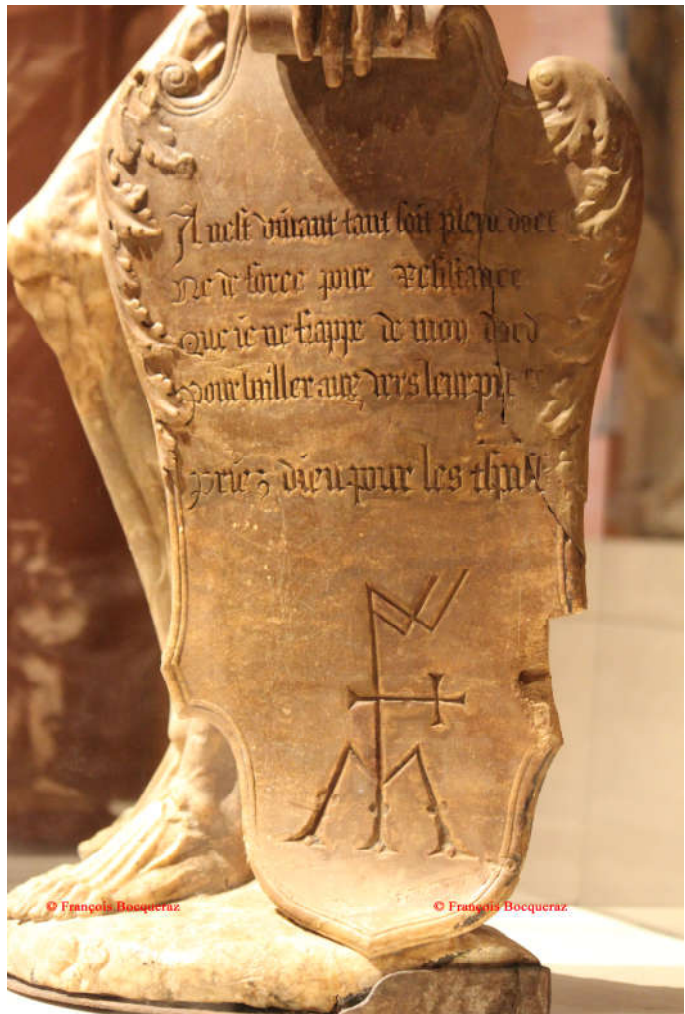 Il nest viuant tant soit plein dart
Ne de force pour Resistance
Que ie ne frappe de mon dard
Pour bailler aux vers leur
priez dieu pour les
© François Bocqueraz © François Bocqueraz